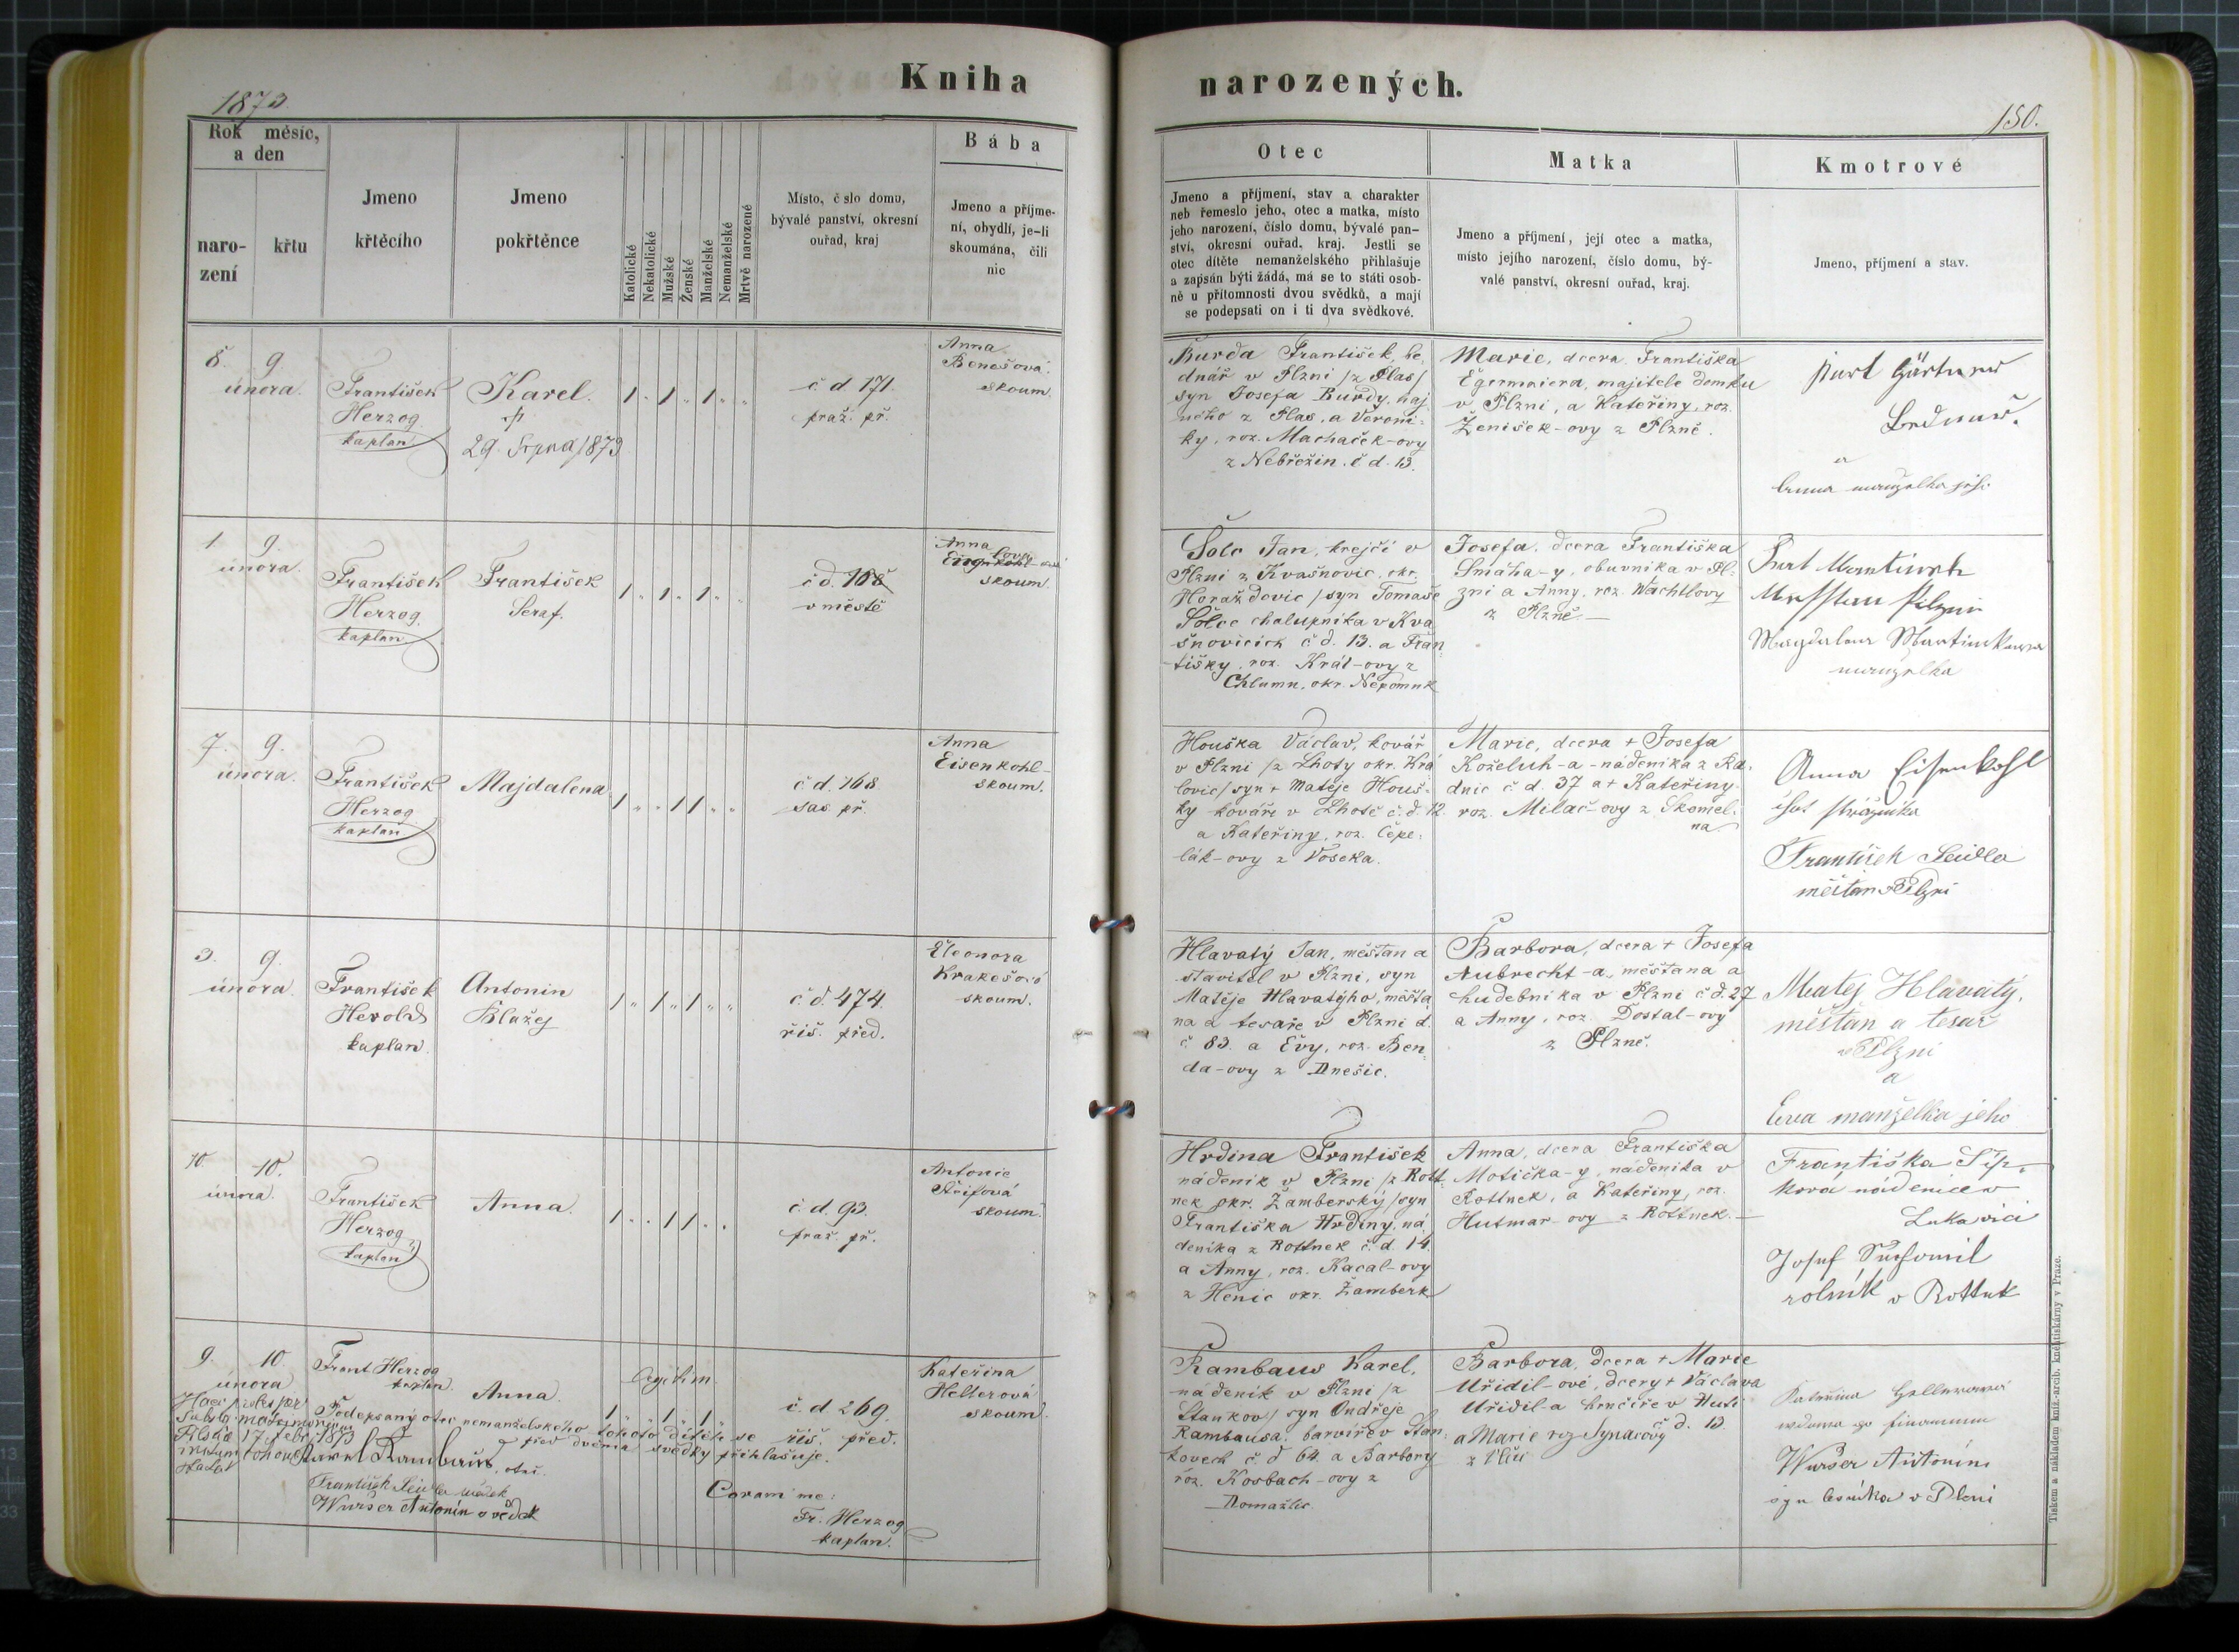 Kniha
narozených.
1873
150.
Rok měsíc,
a den
naro-
zení
křtu
Jmeno
křtěcího
Jmeno
pokřtěnce
Katolické
Nekatolické
Mužské
Ženské
Manželské
Nemanželské
Mrtvě narozené
Místo, č slo domu,
bývalé panství, okresní
ouřad, kraj
Bába
Jmeno a příjme-
ní, obydlí, je-li
skoumána, čili
nic
Otec
Jmeno a příjmení, stav a charakter
neb řemeslo jeho, otec a matka, místo
jeho narození, číslo domu, bývalé pan-
ství, okresní ouřad, kraj. Jestli se
otec dítěte nemanželského přihlašuje
a zapsán býti žádá, má se to státi osob-
ně u přítomnosti dvou svědků, a mají
se podepsati on i ti dva svědkové.
Matka
Jmeno a příjmení, její otec a matka,
místo jejího narození, číslo domu, bý-
valé panství, okresní ouřad, kraj.
Kmotrové
Jmeno, příjmení a stav.
8. 9.
února.
František
Herzog
kaplan
Karel.
29. Srpna 1873
1 " 1 " 1 " "
č d 171.
praž. př.
Anna
Benešová.
skoum.
Burda František, be,
dnář v Plzni /z Plas/
syn Josefa Burdy, náj
z Plas, a Veroni-
ky, roz. Machaček-ovy
z Nebřežin. č d. 13.
Marie, dcera Františka
Egermaiera, majitele domku
v Plzni, a Kateřiny, roz.
Ženíšek-ovy z Plzně.
Gärtner
Bednář.
a
Anna manželka jeho
1 9.
února.
František
Herzog.
kaplan
František
Seraf.
1 " 1 " 1 "
č d. 168
v městě
Anna
skoum.
Šolc Jan, krejčí v
Plzni z Kvašnovic, okr.
Horaždovic /syn Tomaše
Šolce chalupníka v Kva
šnovicích č d. 13. a Fran
tišky, roz. Král-ovy z
Chlumu, okr. Nepomuk
Josefa, dcera Františka
Smáha-y, obuvníka v Pl-
zni a Anny, roz. Wachtlovy
z Plzně.—
Martinek
Magdalena Martinkowa
manzelka
7. 9.
února.
František
Herzog
kaplan
Majdalena
1 " " 1 1 " "
č d. 168
sas. př.
Anna
Eisenkohl-
skoum.
Houška Václav, kovář
v Plzni /z Lhoty okr. Krá
lovic/ syn + Matěje Houš-
ky kováře v Lhotě č. d. 12.
a Kateřiny, roz. Čepe-
lák-ovy z Voseka.
Marie, dcera + Josefa
Koželuh-a - nádeníka z Ra-
dnic č d. 37 a + Kateřiny
roz. Milač-ovy z Skomel-
na
Anna Eisenkohl
František Seidla
měštan v Plzni
3. 9.
února.
František
Herold
kaplan.
Antonin
Blažej
1 " 1 " 1 " "
č. d. 474
řiš. před.
Eleonora
Krakešová
skoum.
Hlavatý Jan, měštan a
stavitel v Plzni, syn
Matěje Hlavatýho, měšťa
na a tesaře v Plzni d.
č. 83. a Evy, roz. Ben-
da-ovy z Dnešic.
Barbora, dcera + Josefa
Aubrecht-a, měštana a
hudebníka v Plzni č d. 27
a Anny, roz. Dostal-ovy
z Plzně.
Matěj Hlavatý,
měštan a tesař
w Plzni
a
Ewa manželka jeho
10. 10.
února.
František
Herzog
kaplan
Anna.
1 " " 1 1 " "
č. d. 93.
praž. př.
Antonie
skoum.
Hrdina František
nádenik v Plzni /z Rott
nek okr. Žamberský /syn
Františka Hrdiny, ná
deníka z Rottnek č. d. 14.
a Anny, roz. Kacal-ovy
z Henic okr. Žamberk
Anna, dcera Františka
Motička-y, nádeníka v
Rottnek, a Kateřiny, roz.
Hutmar-ovy z Rottnek.—
Františka Síp,
ková nádenice w
Lukavici
Josef
rolník v Rottnek
9. 10.
února
Frant Herzog
kaplan.
Anna.
legitim.
1 " " 1 1
č. d 269.
řiš. před.
Kateřina
Hellerová
skoum.
17. Febr. 1873
Podepsaný otec nemanželského tohoto dítěte se
před dvěma svědky přihlašuje.
Karel Rambaus, otec.
František Seidla svědek
Wurser Antonín svědek
Coram me:
Fr. Herzog
kaplan.
Rambaus Karel,
nádeník v Plzni /z
Stankov/ syn Ondřeje
Rambausa, barvíře v Stan-
kovech č. d 64. a Barbory
roz. Korbach-ovy z
Domažlic.
Barbora, dcera + Marie
Uřidil-ové, dcery + Václava
Uřidil-a hrnčíře v Huti
č d. 13.
a Marie roz Synacovy
Katerina Hellerowá
Wurser Antonín
syn v Plzni
Tiskem a nákladem kníž.-arcib. knihtiskárny v Praze.